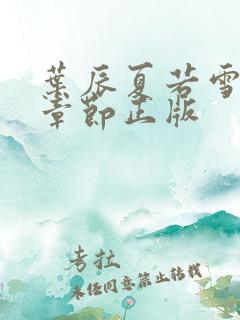 葉辰夏若雪
章節正版
考拉
未经同意禁止转载